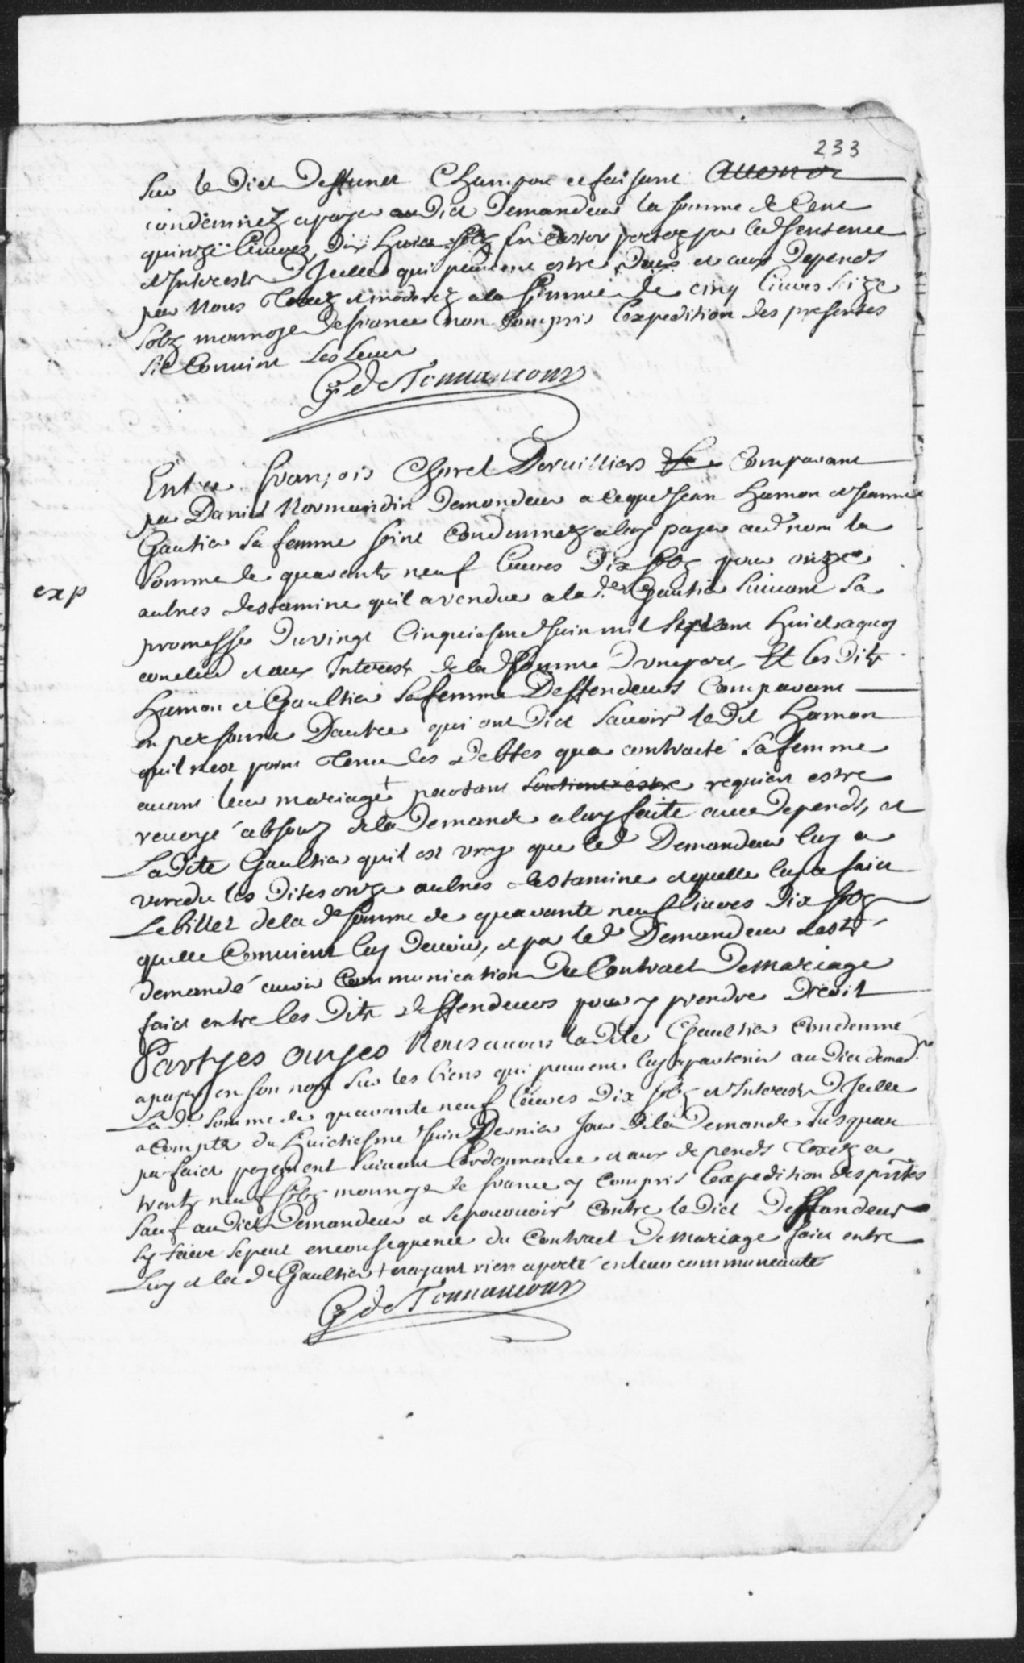 233
sur le dict deffunct Champou et faisant
condemnez a payer audict Demandeur la somme de Cent
quinze livres dix huict solz en Castor portez par lad sentence
et Interests D'Jcelle qui peuvent estre deus et aux Depends
par Nous Taxez et moderez a la somme de cinq livres seize
solz monnoye de france non compris l'expedition des presentes
G de Tonnancour
Entre François Chorel Dorvilliers Comparant
par Daniel Normandin Demandeur a ce que Jean Hamon et Jeanne
Gautier sa femme soint Condemnez a luy payer aud nom la
somme de quarente neuf livres dix solz pour onze
exp
aulnes destamine qu'il a vendue a la de Gautier suivant sa
promesse du vingt Cinquiesme Juin mil sept cent huict a quoy
conclud et aux Interests de la de somme D'une part, Et les dits
Hamon et Gaultier sa femme Deffendeurs Comparant
en personne Dautre qui ont dict sauoir le dit Hamon
qu'il nest point Tenu les Debtes qu'a contracté sa femme
auant leur mariage + partant soutient estre requiert estre
renuoyé absouz de la Demande a luy faite auec Depends, et
La dite Gaultier qu'il est vray que led Demandeur luy a
vendu les dites onze aulnes destamine et quelle luy a faict
Le billet de la de somme de quarante neuf livres dix solz
quelle Convient luy devoir, et par led Demandeur a esté
demandé auoir Communication du Contract De mariage
faict entre les dits deffendeurs pour y prendre droit
Partyes ouyes Nous auons la dite Gaultier Condemné
a payer en son nom sur les biens qui peuvent luy apartenir audict demandr
La de somme de quarante neuf livres dix solz et Interests D'Jcelle
a Compter du huictiesme Juin Dernier Jour de la Demande Jusquau
parfaict payement suivant l'ordonnance et aux depends Taxez a
trente neuf solz monnoye de france y compris l'expedition des pntes
sauf audict Demandeur a se pourvoir Contre le dict Deffandeur
sy faire se peut en consequence du Contract De mariage faict entre
Luy et la de Gaultier + nayant rien aporté en leur communauté
G de Tonnancour